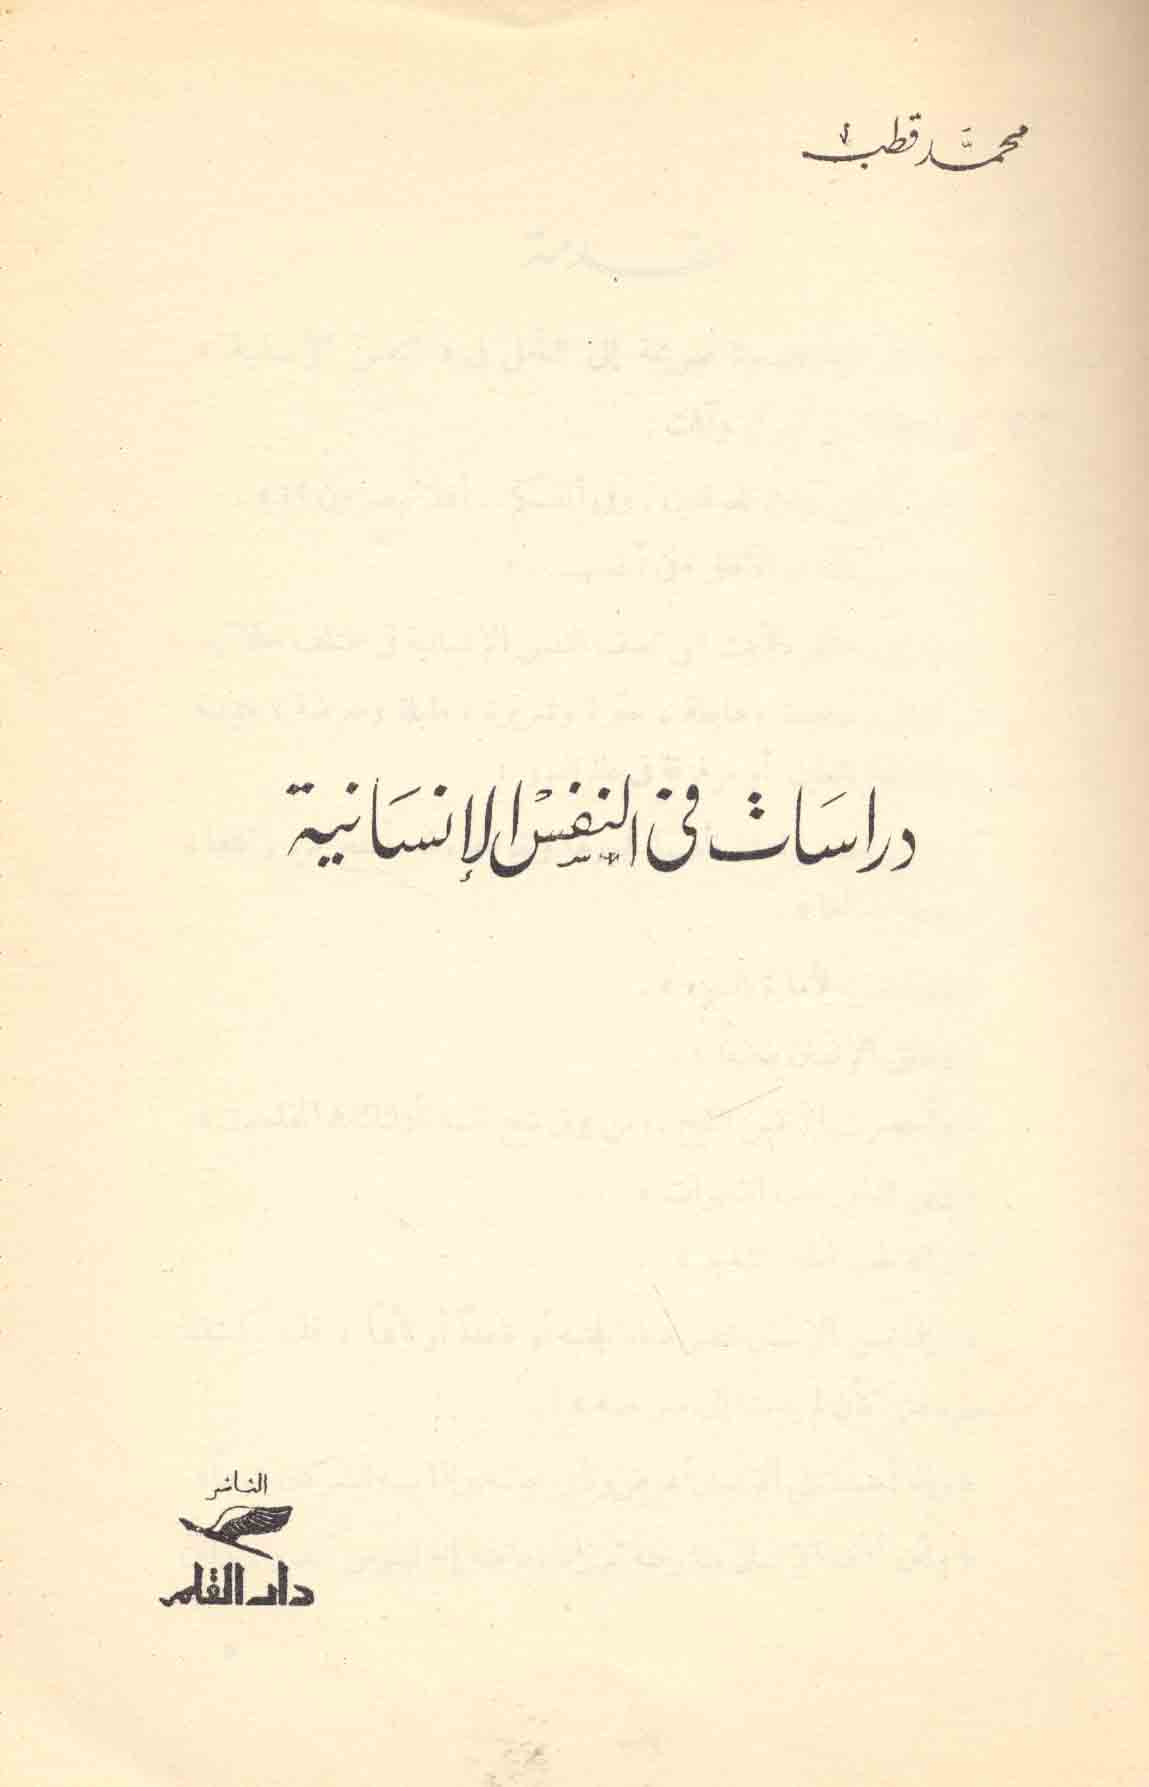 محمَّد قطب
دراسات في النفس الإنسانية
الناشر
دار القلم